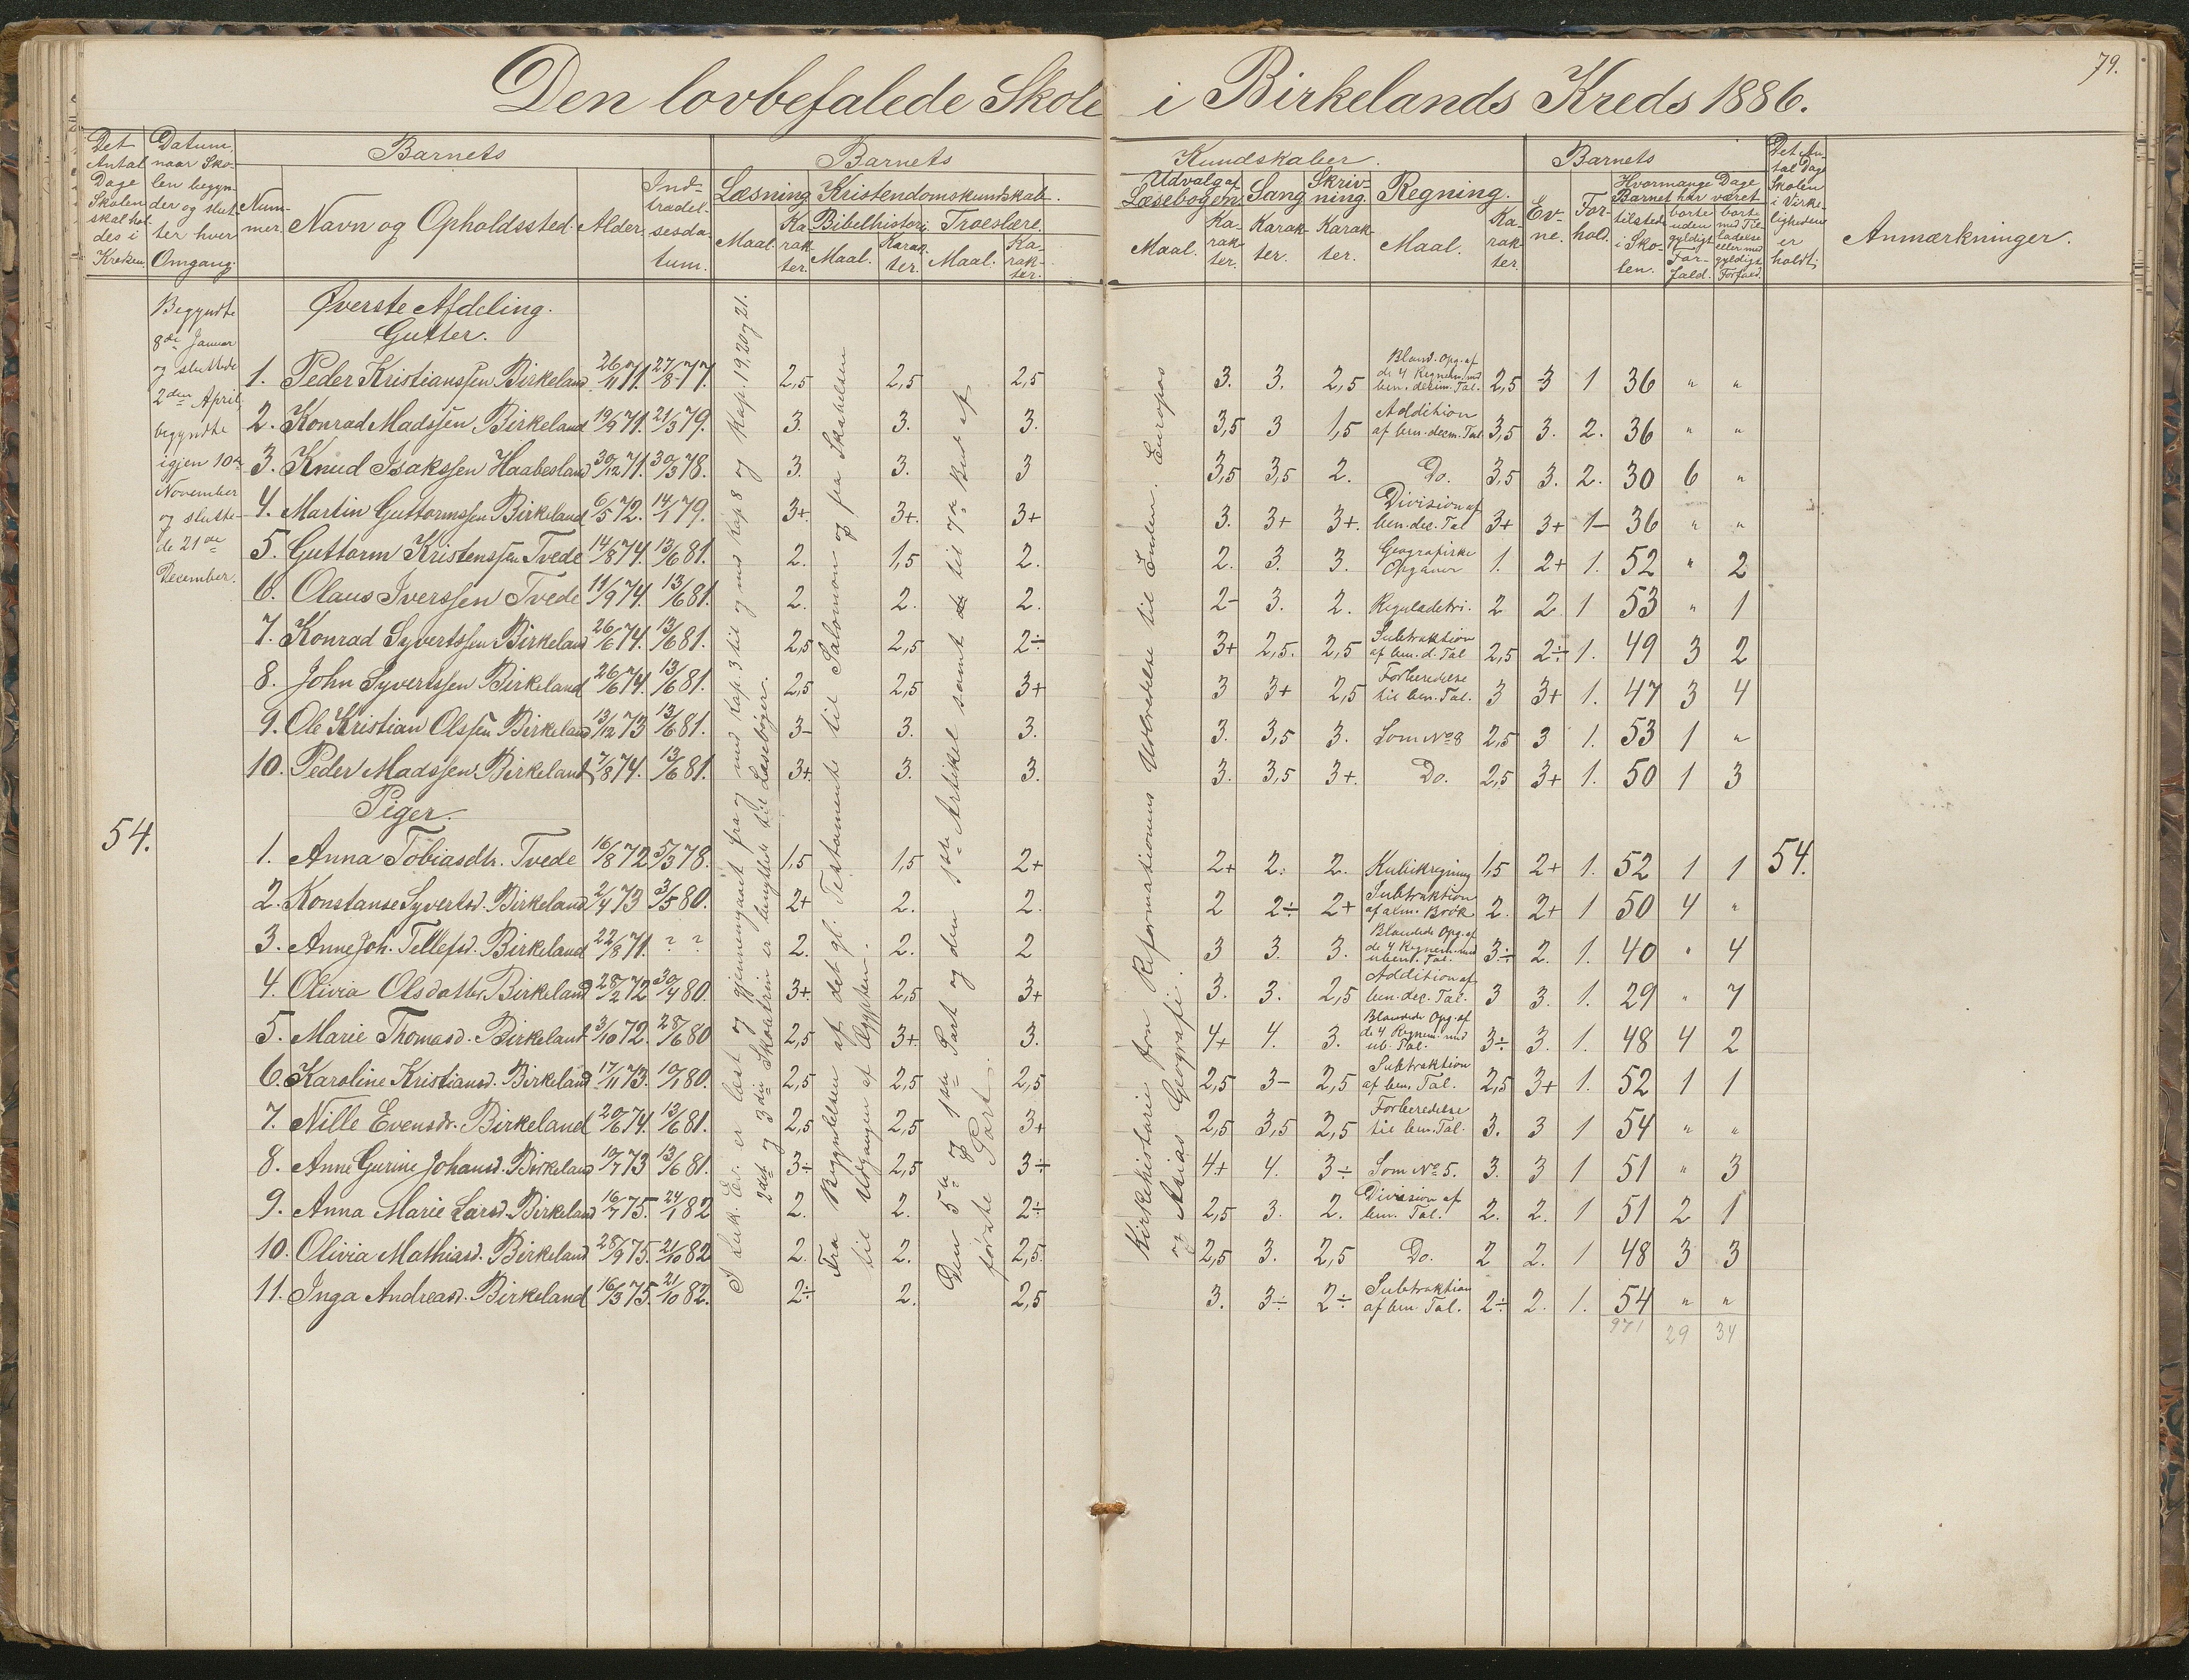 79.
Den lovbefalede Skole i Birkelands Kreds 1886.
Det Antal Dage Skolen skal holdes i Kredsen.
Datum, naar Skolen begynder og slutter hver Omgang.
Barnets
Nummer.
Navn og Opholdssted.
Alder.
Indtrædelsesdatum.
Barnets Kundskaber.
Læsning.
Maal.
Karakter.
Kristendomskundskab.
Bibelhistorie.
Maal.
Karakter.
Troeslære.
Maal.
Karakter.
Udvalg af Læsebogen.
Maal.
Karakter.
Sang
Karakter.
Skrivning.
Karakter.
Regning.
Maal.
Karakter.
Barnets
Evne.
Forhold.
Hvormange Dage Barnet har været
tilstede i Skolen.
borte uden gyldigt Forfald.
bort med Tilladelse eller med gyldigt Forfald.
Det Antal Dage Skolen i Virkeligheden er holdt.
Anmærkninger.
Begyndte
8de Januar
og sluttede
2den April,
begyndte
igjen 10de
November
og slutte-
de 21de
December.
54.
I Luk. Ev. er læst og gjennemgaaet fra og med Kap. 3 til og med Kap 8 og Kap. 19, 20 og 21.
2det og 3die Skoletrin er benyttede til Læsebøger.
Fra Begyndelsen af det gl. Testamente til Salomon og fra Skabelsen
til Udgangen af Ægypten.
Den 5te og 1ste Part og den 1ste Artikel samt til 7de Bud af
første Part.
Kirkehistorie fra Reformationens Udbredelse til Enden. Europas
og Asias Geografi.
Øverste Afdeling.
Gutter.
1. Peder Kristianssen Birkeland 26/11 71. 27/8 77. 2,5 2,5 2,5 3. 3. 2,5 Bland. Opg. af de 4 Regnem. med ben. decim. Tal. 2,5 3 1 36 " "
2. Konrad Madssen Birkeland 19/9 71. 21/3 79. 3. 3. 3. 3,5 3 1,5 Addition af ben. decm. Tal 3,5 3. 2. 36 " "
3. Knud Isakssen Haabesland 30/12 71. 30/3 78. 3. 3. 3 3,5 3,5 2. Do. 3,5 3. 2. 30 6 "
4. Martin Guttormssen Birkeland 6/5 72. 14/1 79. 3+. 3+. 3+ 3. 3+ 3+. Division af ben. dec. Tal 3+ 3+ 1- 36 " "
5. Guttorm Kristenssen Tvede 14/8 74. 13/6 81. 2. 1,5 2. 2. 3. 3. Geografiske Opgaver 1. 2+ 1. 52 " 2
6. Olaus Iverssen Tvede 11/9 74. 13/6 81. 2. 2. 2. 2- 3. 2. Reguladetri. 2 2 1 53 " 1
7. Konrad Syvertssen Birkeland 26/6 74. 13/6 81. 2,5 2,5 2÷ 3+ 2,5. 2,5 Subtraktion af ben. d. Tal 2,5 2÷ 1. 49 3 2
8. John Syvertssen Birkeland 26/6 74. 13/6 81. 2,5 2,5 3+ 3 3+ 2,5 Forberedelse til ben. Tal. 3 3+ 1. 47 3 4
9. Ole Kristian Olssen Birkeland 13/12 73 13/6 81. 3- 3. 3. 3. 3,5 3. Som No 8 2,5 3 1. 53 1 "
10. Peder Madssen Birkeland 7/8 74. 13/6 81. 3+. 3. 3. 3. 3,5 3+. Do. 2,5 3+ 1. 50 1 3
Piger.
1. Anna Tobiasdtr. Tvede 16/8 72 5/3 78. 1,5 1,5 2+ 2+ 2. 2. Kubikregning 1,5 2+ 1. 52 1 1 54.
2. Konstanse Syvertsd. Birkeland 2/4 73 3/5 80. 2+ 2. 2. 2 2÷ 2+ Subtraktion af alm. Brøk 2. 2+ 1 50 4 "
3. Anne Joh. Tellefsd. Birkeland 22/8 71. ? ? 2. 2. 2 3 3. 3. Blandede Opg. af de 4 Regnem. med ubent. Tal. 3÷ 2. 1. 40 " 4
4. Olivia Olsdatter Birkeland 28/2 72 30/4 80. 3+. 2,5 3+ 3. 3. 2,5 Addition af ben. dec. Tal. 3 3. 1. 29 " 7
5. Marie Thomasd. Birkeland 3/10 72. 28/6 80 2,5 3+. 3. 4+ 4. 3. Blandede Opg. af de 4 Regnem. med ub. Tal. 3÷ 3. 1. 48 4 2
6. Karoline Kristiansd. Birkeland 17/11 73. 19/1 80. 2,5 2,5 2,5 2,5 3- 2,5 Subtraktion af ben. Tal. 2,5 3+ 1. 52 1 1
7. Nille Evensdr. Birkeland 20/6 74. 13/6 81. 2,5 2,5 3+ 2,5 3,5 2,5 Forberedelse til ben. Tal. 3. 3 1 54 " "
8. Anne Gurine Johansd. Birkeland 10/7 73 13/6 81. 3÷ 2,5 3÷ 4+ 4. 3÷ Som No 5. 3. 3 1 51 " 3
9. Anna Marie Larsd. Birkeland 16/7 75. 24/1 82 2. 2. 2÷ 2,5 3. 2. Division af ben. Tal. 2. 2. 1 51 2 1
10. Olivia Mathiasd. Birkeland 28/9 75. 21/10 82 2. 2. 2,5. 2,5 3. 2,5 Do. 2 2. 1 48 3 3
11. Inga Andreasd. Birkeland 16/3 75. 21/10 82. 2÷ 2. 2,5 3. 3÷ 2÷ Subtraktion af ben. Tal. 2÷ 2. 1. 54 " "
971 29 34